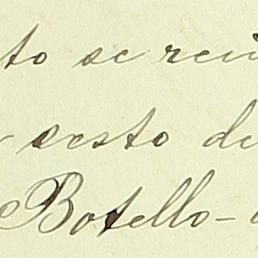 to se reu
sesto de
Botello-